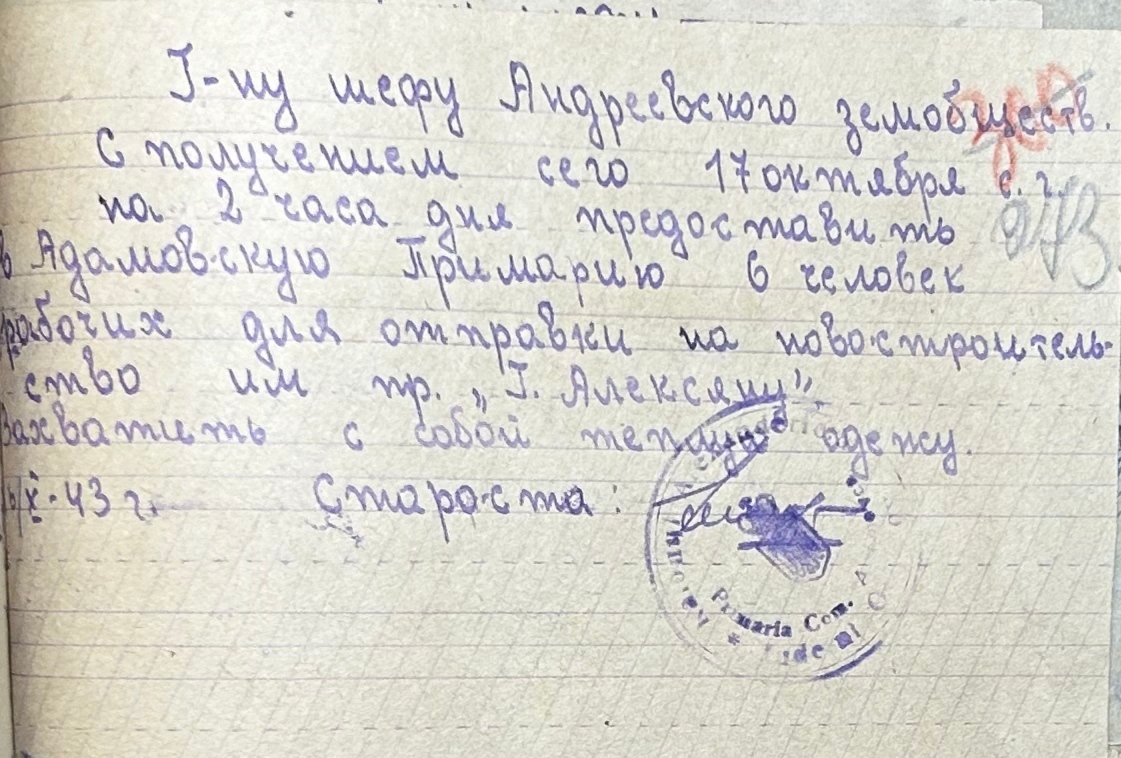 I-ну шефу Андреевского земобществ.
С получением сего 17 октября с. г.
на 2 часа дня предоставить
в Адамовскую Примарию 6 человек
рабочих для отправки на новостроитель-
ство им пр. „Г. Алексяну”
Захватить с собой теплую одежу.
X-43 г. Староста:
Primaria Com.
de